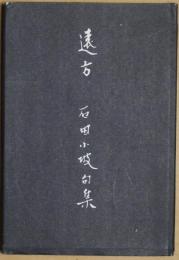 遠方
石田小坡句集